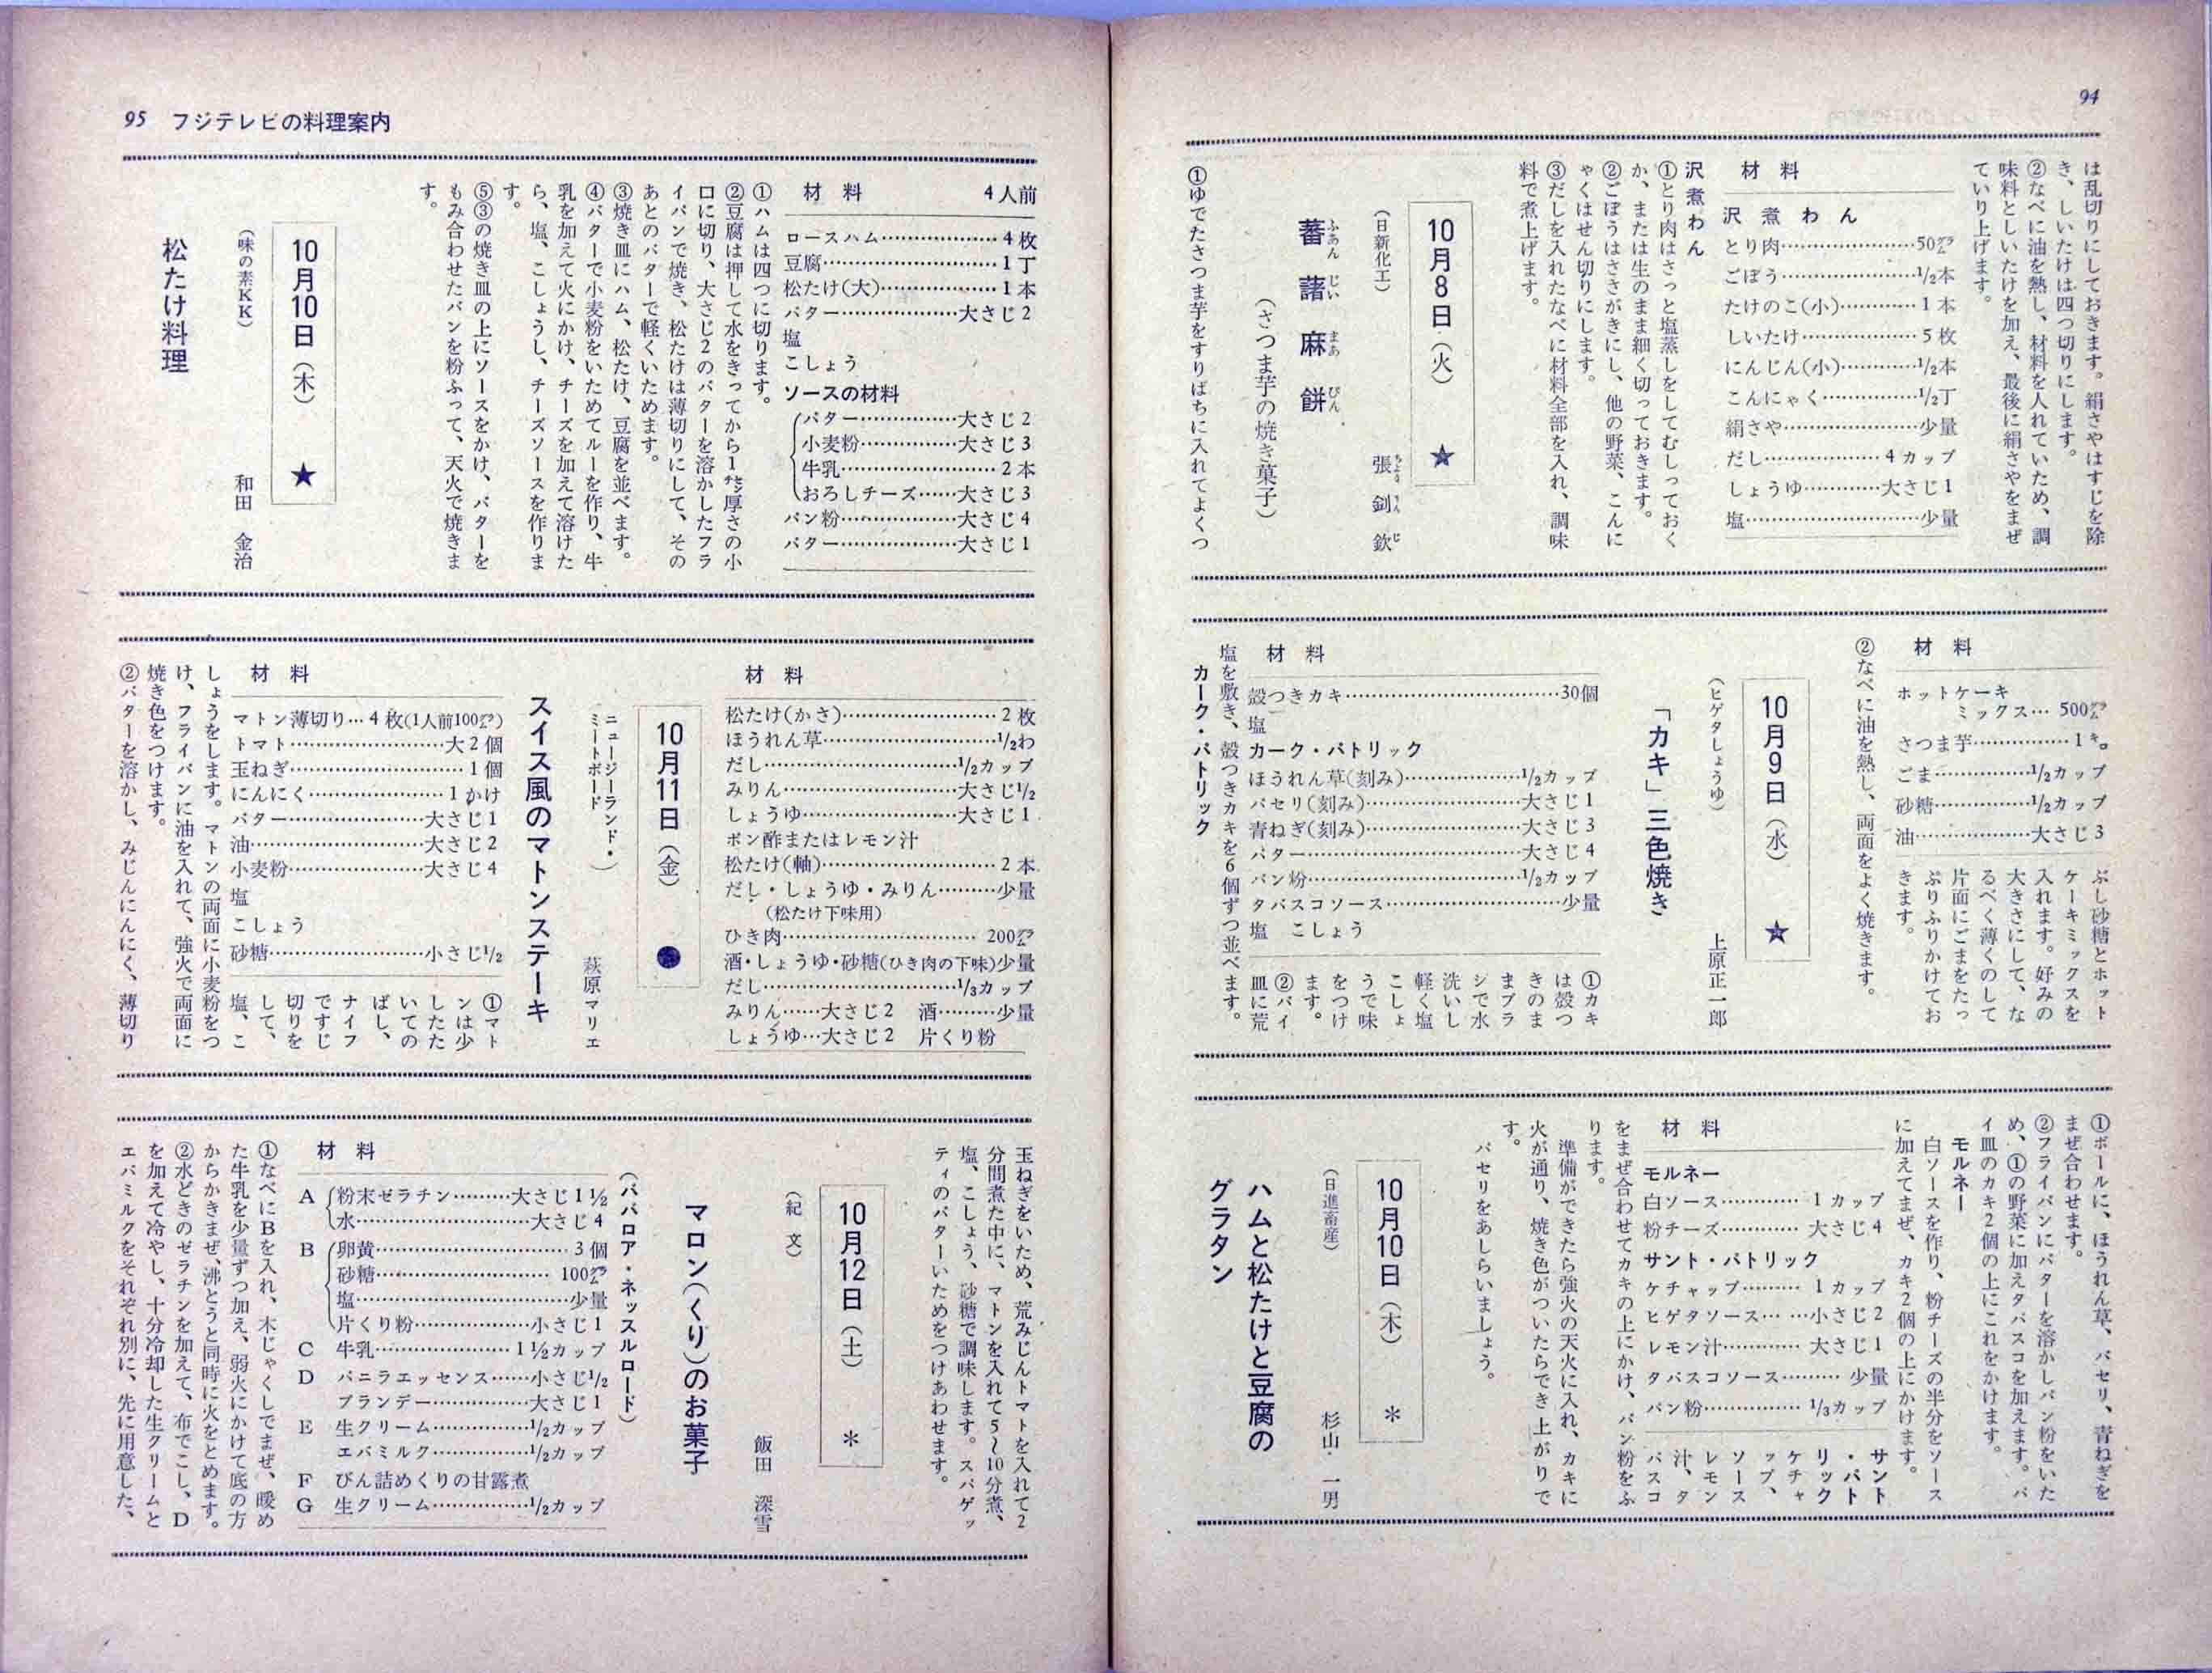 94
は乱切りにしておきます。絹さやはすじを除
き、しいたけは四つ切りにします。
②なべに油を熱し、材料を入れていため、調
味料としいたけを加え、最後に絹さやをまぜ
ていり上げます。
材料
沢煮わん
とり肉……50㌘
ごぼう……1/2本
たけのこ(小)……1本
しいたけ……5枚
にんじん(小)……1/2本
こんにゃく……1/2丁
絹さや……少量
だし……4カップ
しょうゆ……大さじ1
塩……少量
沢煮わん
①とり肉はさっと塩蒸しをしてむしっておく
か、または生のまま細く切っておきます。
②ごぼうはささがきにし、他の野菜、こんに
ゃくはせん切りにします。
③だしを入れたなべに材料全部を入れ、調味
料で煮上げます。
10月8日(火) ★
(日新化工)
張 釗 欽
蕃藷麻餅
ふあん じい まあ びん
(さつま芋の焼き菓子)
①ゆでたさつま芋をすりばちに入れてよくつ
材料
ホットケーキ
ミックス…500㌘
さつま芋……1㌔
ごま……1/2カップ
砂糖……1/2カップ
油……大さじ3
ぶし砂糖とホット
ケーキミックスを
入れます。好みの
大きさにして、な
るべく薄くのして
片面にごまをたっ
ぷりふりかけてお
きます。
②なべに油を熱し、両面をよく焼きます。
10月9日(水) ★
(ヒゲタしょうゆ)
上原正一郎
「カキ」三色焼き
材料
殻つきカキ……30個
塩
カーク・パトリック
ほうれん草(刻み)……1/2カップ
パセリ(刻み)……大さじ1
青ねぎ(刻み)……大さじ3
バター……大さじ4
パン粉……1/2カップ
タバスコソース……少量
塩 こしょう
①カキ
は殻つ
きのま
まブラ
シで水
洗いし
軽く塩
こしょ
うで味
をつけ
ます。
②パイ
皿に荒
塩を敷き、殻つきカキを6個ずつ並べます。
カーク・パトリック
①ボールに、ほうれん草、パセリ、青ねぎを
まぜ合わせます。
②フライパンにバターを溶かしパン粉をいた
め、①の野菜に加えタバスコを加えます。パ
イ皿のカキ2個の上にこれをかけます。
モルネー
白ソースを作り、粉チーズの半分をソース
に加えてまぜ、カキ2個の上にかけます。
材料
モルネー
白ソース……1カップ
粉チーズ……大さじ4
サント・パトリック
ケチャップ……1カップ
ヒゲタソース……小さじ2
レモン汁……大さじ1
タバスコソース……少量
パン粉……1/3カップ
サント
・パト
リック
ケチャ
ップ、
ソース
レモン
汁、タ
バスコ
をまぜ合わせてカキの上にかけ、パン粉をふ
ります。
準備ができたら強火の天火に入れ、カキに
火が通り、焼き色がついたらでき上がりで
す。
パセリをあしらいましょう。
10月10日(木) ＊
(日進畜産)
杉山 一男
ハムと松たけと豆腐の
グラタン
95 フジテレビの料理案内
材料 4人前
ロースハム……4枚
豆腐……1丁
松たけ(大)……1本
バター……大さじ2
塩
こしょう
ソースの材料
バター……大さじ2
小麦粉……大さじ3
牛乳……2本
おろしチーズ……大さじ3
パン粉……大さじ4
バター……大さじ1
①ハムは四つに切ります。
②豆腐は押して水をきってから1㌢厚さの小
口に切り、大さじ2のバターを溶かしたフラ
イパンで焼き、松たけは薄切りにして、その
あとのバターで軽くいためます。
③焼き皿にハム、松たけ、豆腐を並べます。
④バターで小麦粉をいためてルーを作り、牛
乳を加えて火にかけ、チーズを加えて溶けた
ら、塩、こしょうし、チーズソースを作りま
す。
⑤③の焼き皿の上にソースをかけ、バターを
もみ合わせたパンを粉ふって、天火で焼きま
す。
10月10日(木) ★
(味の素KK)
和田 金治
松たけ料理
材料
松たけ(かさ)……2枚
ほうれん草……1/2わ
だし……1/2カップ
みりん……大さじ1/2
しょうゆ……大さじ1
ポン酢またはレモン汁
松たけ(軸)……2本
だし・しょうゆ・みりん……少量
(松たけ下味用)
ひき肉……200㌘
酒・しょうゆ・砂糖(ひき肉の下味)少量
だし……1/3カップ
みりん……大さじ2 酒……少量
しょうゆ…大さじ2 片くり粉
10月11日(金) ●
ニュージーランド・
ミートボード)
萩原マリエ
スイス風のマトンステーキ
材料
マトン薄切り…4枚(1人前100㌘)
トマト……大2個
玉ねぎ……1個
にんにく……1かけ
バター……大さじ1
油……大さじ2
小麦粉……大さじ4
塩
こしょう
砂糖……小さじ1/2
①マト
ンは少
したた
いての
ばし、
ナイフ
ですじ
切りを
して、
塩、こ
しょうをします。マトンの両面に小麦粉をつ
け、フライパンに油を入れて、強火で両面に
焼き色をつけます。
②バターを溶かし、みじんにんにく、薄切り
玉ねぎをいため、荒みじんトマトを入れて2
分間煮た中に、マトンを入れて5〜10分煮、
塩、こしょう、砂糖で調味します。スパゲッ
ティのバターいためをつけあわせます。
10月12日(土) ＊
(紀文)
飯田 深雪
マロン(くり)のお菓子
(ババロア・ネッスルロード)
材料
A 粉末ゼラチン……大さじ1 1/2
水……大さじ4
B 卵黄……3個
砂糖……100㌘
塩……少量
片くり粉……小さじ1
C 牛乳……1 1/2カップ
D バニラエッセンス……小さじ1/2
ブランデー……大さじ1
E 生クリーム……1/2カップ
エバミルク……1/2カップ
F びん詰めくりの甘露煮
G 生クリーム……1/2カップ
①なべにBを入れ、木じゃくしでまぜ、暖め
た牛乳を少量ずつ加え、弱火にかけて底の方
からかきまぜ、沸とうと同時に火をとめます。
②水どきのゼラチンを加えて、布でこし、D
を加えて冷やし、十分冷却した生クリームと
エバミルクをそれぞれ別に、先に用意した、